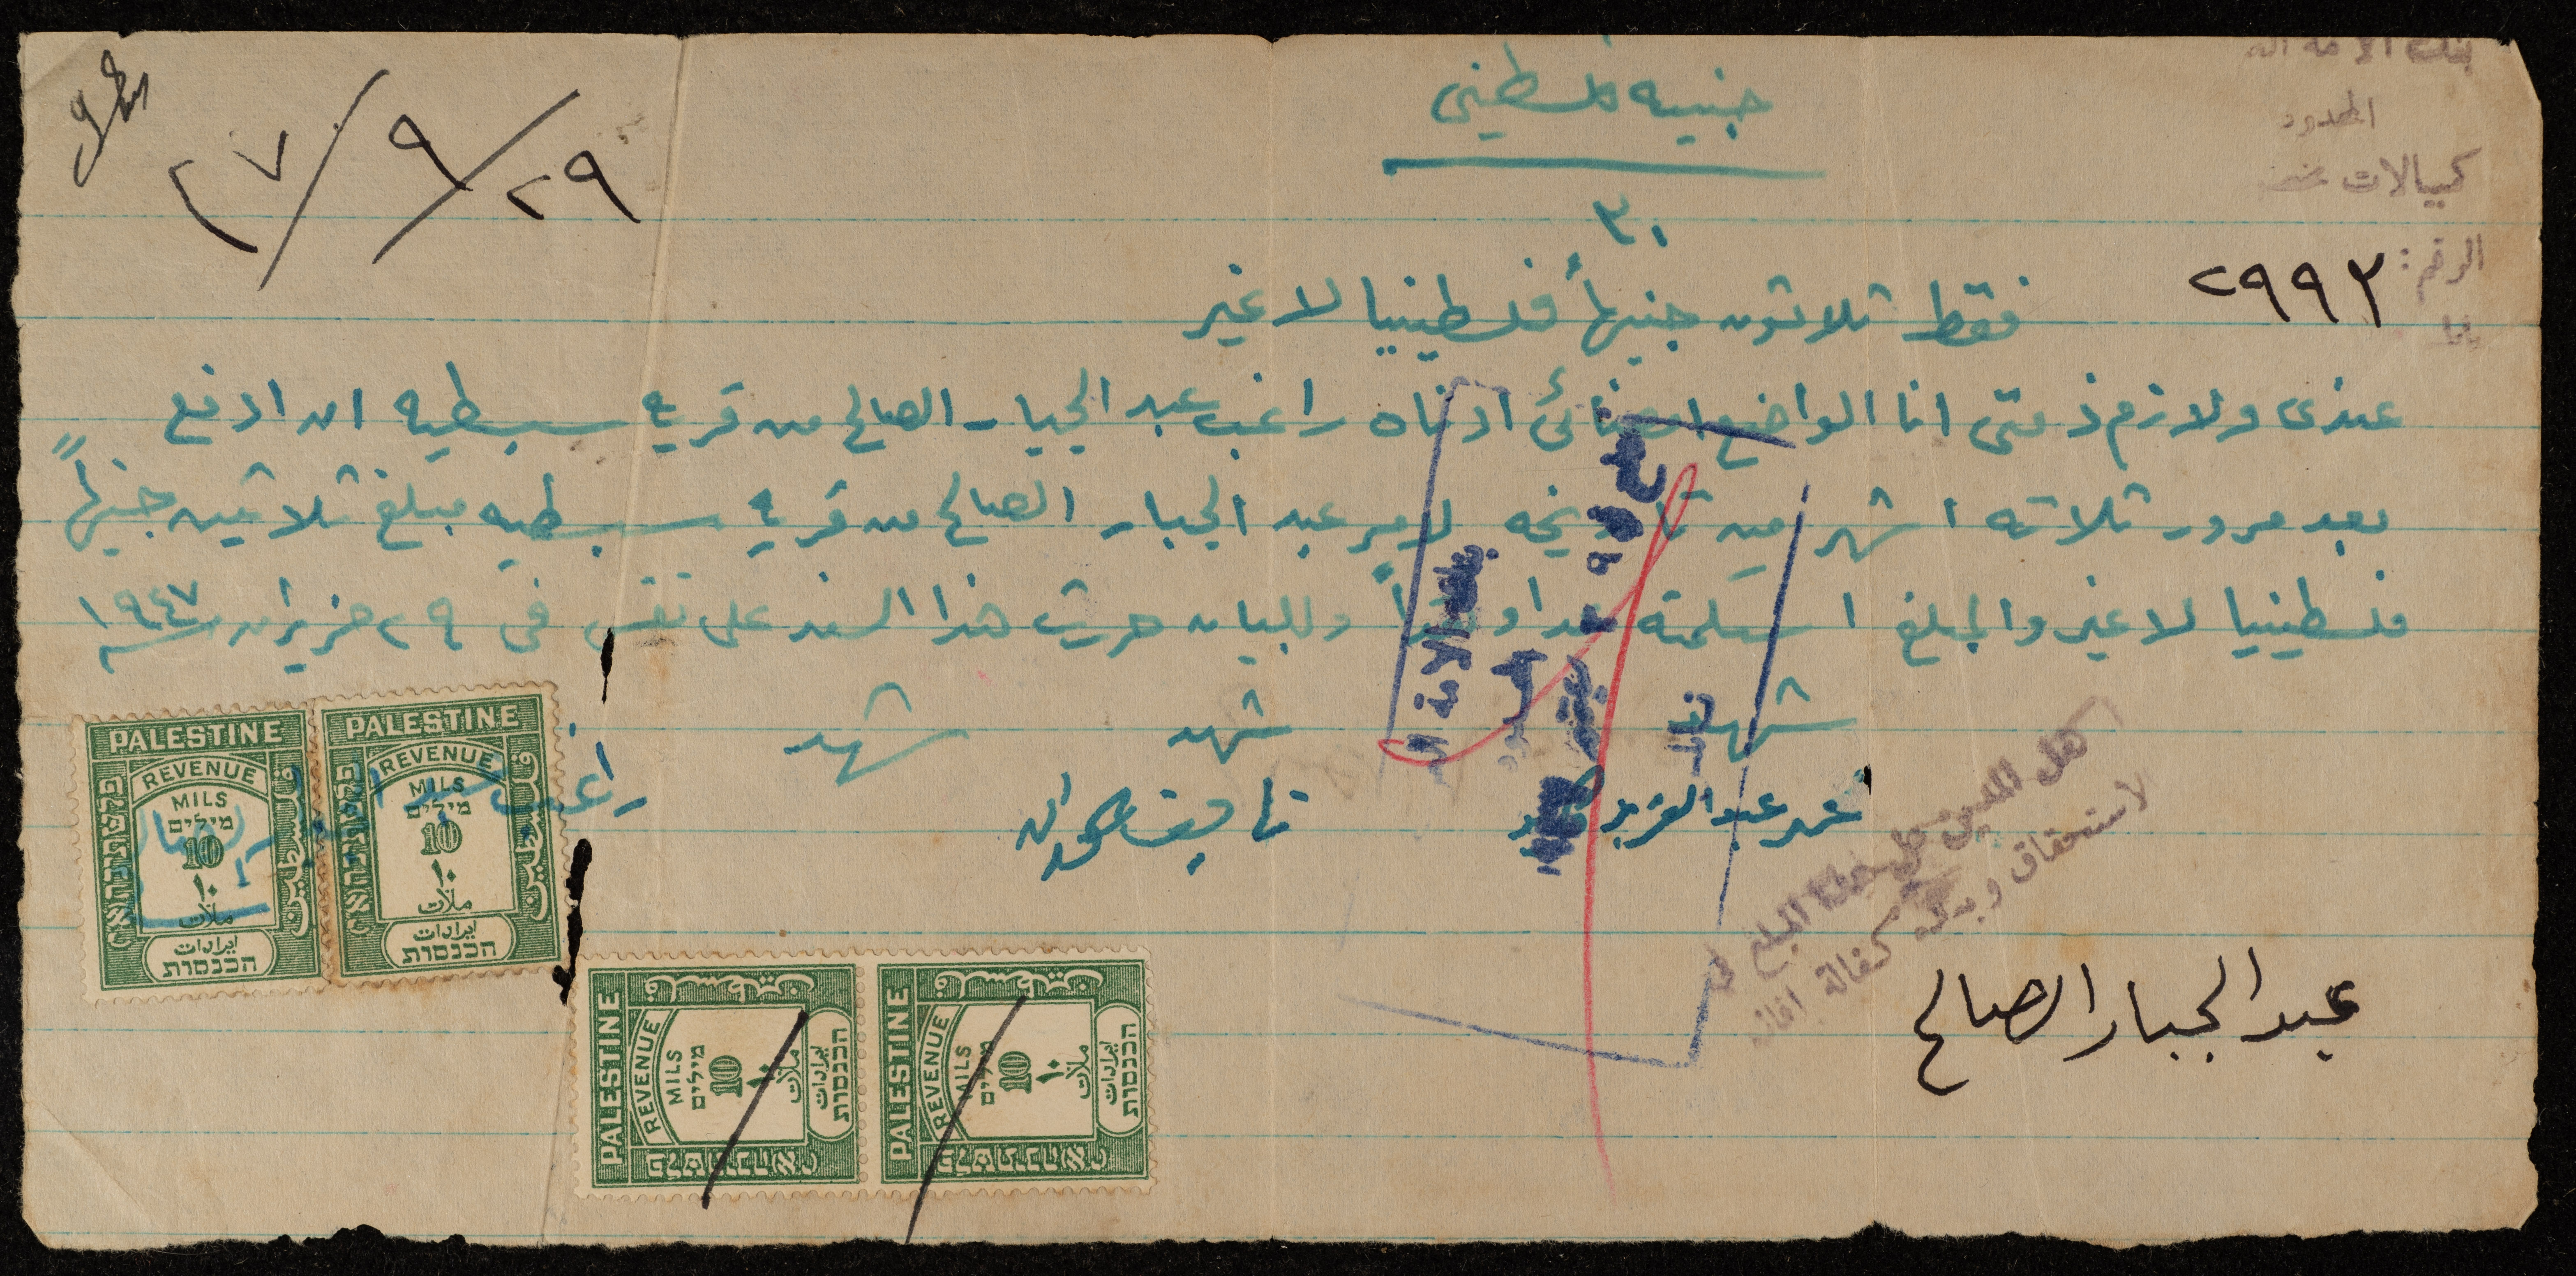 جنيه فلسطيني
٣٠
٢٩/٩/٤٧
المحدود
كمبيالات
الرقم: ٢٩٩٣
فقط ثلاثون جنيهاً فلسطينيا لا غير
عندي ولازم ذمتي انا الواضع امضائي ادناه راغب عبد الجبار الصالح من قرية سبسطيه ان ادفع
بعد مرور ثلاثة اشهر من تاريخه لامر عبد الجبار الصالح من قرية سبسطيه مبلغ ثلاثين جنيهاً
فلسطينيا لا غير والمبلغ استلمته نقدا وللبيان حررت هذا السند على نفسي في ٢٩ حزيران سنة ١٩٤٧
شهد
شهد
شهد
عمر عبد العزيز
راغب عبد الجبار الصالح
هذا المبلغ في
لاستحقاق وبدون كفالة
عبد الجبار الصالح
بنك الامة
PALESTINE
REVENUE
MILS
מילים
10
١٠
ملات
ايرادات
הכנסות
فلسطين
פלשתינה א״י
PALESTINE
REVENUE
MILS
מילים
10
١٠
ملات
ايرادات
הכנסות
فلسطين
פלשתינה א״י
PALESTINE
REVENUE
MILS
מילים
10
١٠
ملات
ايرادات
הכנסות
فلسطين
פלשתינה א״י
PALESTINE
REVENUE
MILS
מילים
10
١٠
ملات
ايرادات
הכנסות
فلسطين
פלשתינה א״י